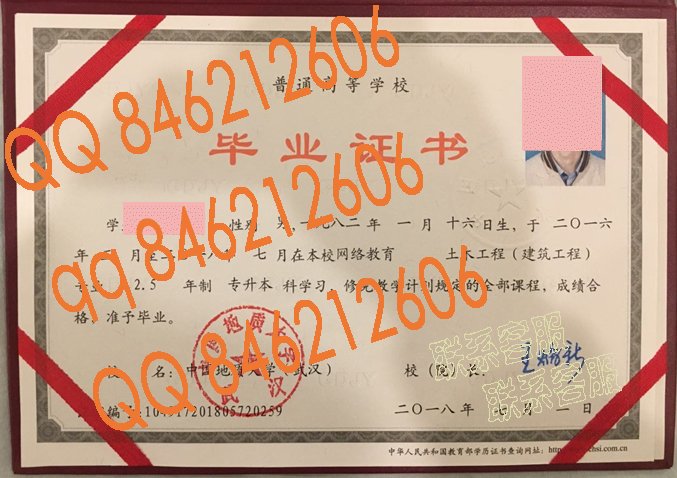 普通高等学校
毕业证书
QQ 846212606
学 性别 男,一九八二年 一月 十六日生,于 二〇一六
年 月至二 一八年 七月在本校网络教育 土木工程(建筑工程)
qq 846212606
专业 2.5 年制 专升本 科学习,修完教学计划规定的全部课程,成绩合
格,准予毕业。
QQ 846212606
校 名:中国地质大学(武汉)
校(院)长:
联系客服
联系客服
编号:104917201805720259
二〇一八年 七月 一日
中华人民共和国教育部学历证书查询网址:http://www.chsi.com.cn